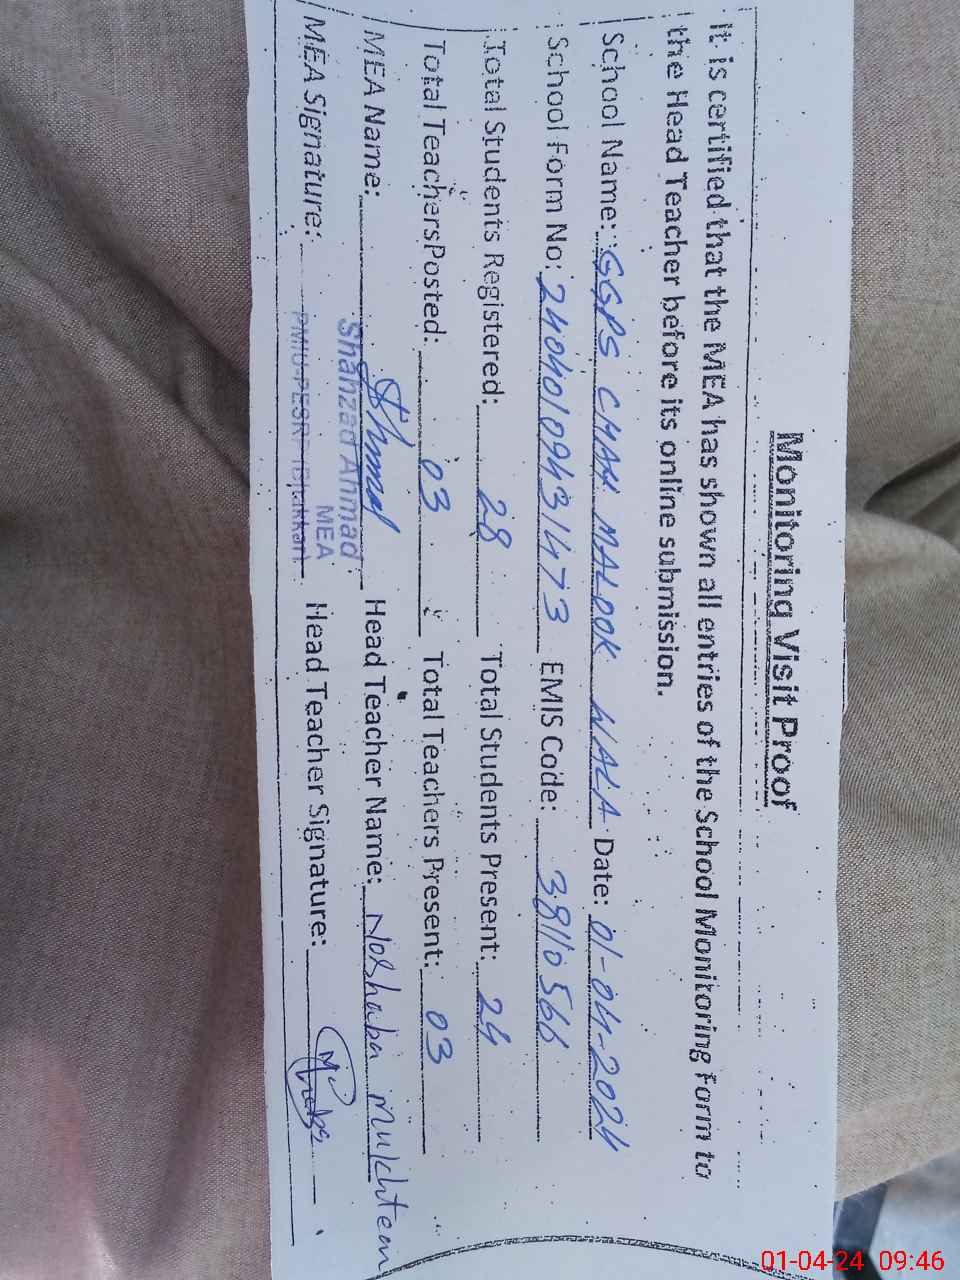 Monitoring Visit Proof
It is certified that the MEA has shown all entries of the School Monitoring Form to
the Head Teacher before its online submission.
School Name: GGPS CHAH MALOOK WALA Date: 01-04-2024
School Form No: 24040109431473 EMIS Code: 38110566
Total Students Registered: 28 Total Students Present: 24
Total TeachersPosted: 03 Total Teachers Present: 03
MEA Name: Head Teacher Name: Noshaba Mukhtear
Shahzad Ahmad
MEA
MEA Signature: PMIU-PESRP (Bhakkar) Head Teacher Signature:
01-04-24 09:46